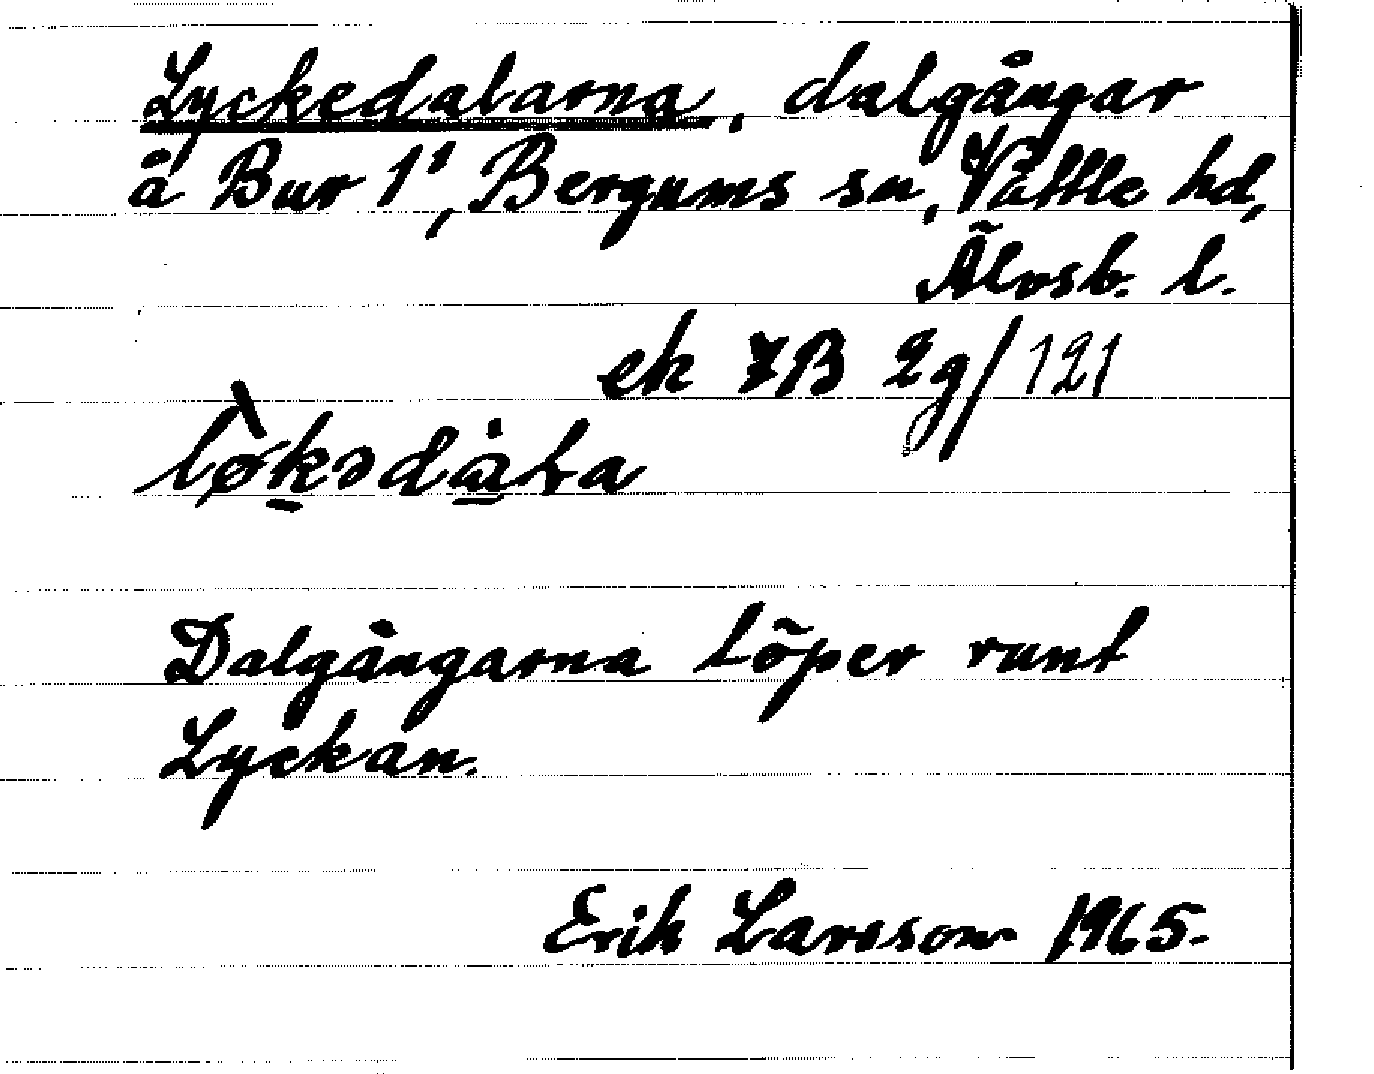 Lyckedalarna, dalgångar
å Bur 1¹, Bergums sn, Vättle hd,
Älvsb. l.
ek 7B 2g/121
lø̀kədȧla
Dalgångarna löper runt
Lyckan.
Erik Larsson 1965.